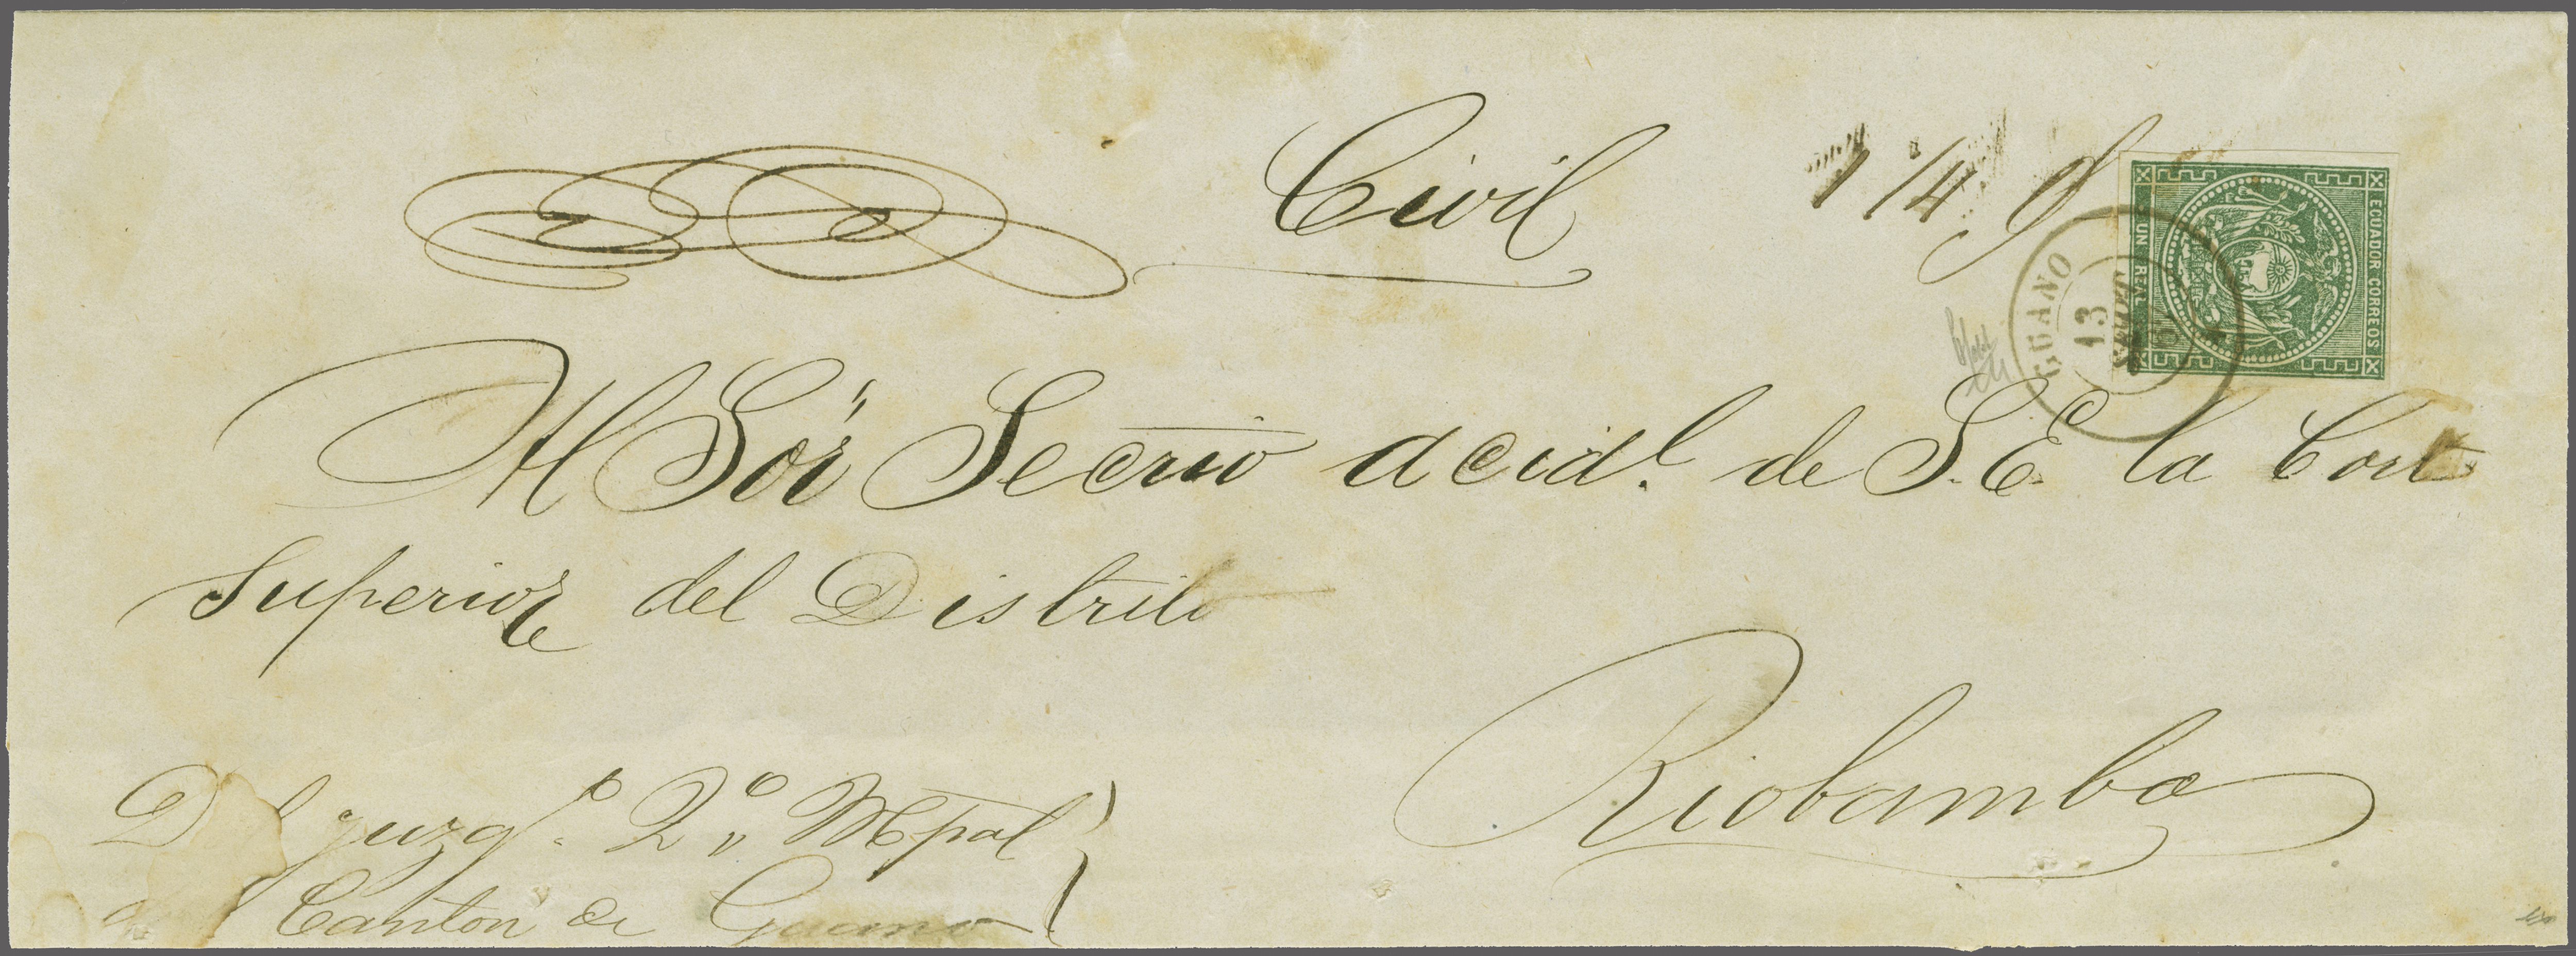 Civil
ECUADOR CORREOS
UN REAL
GUANO
13
SEPT
Al Sor Secrio acidl. de S.E. la Corte
Superior del Distrito
Riobamba
Del juzgo. 2o Mpal
Canton de Guano